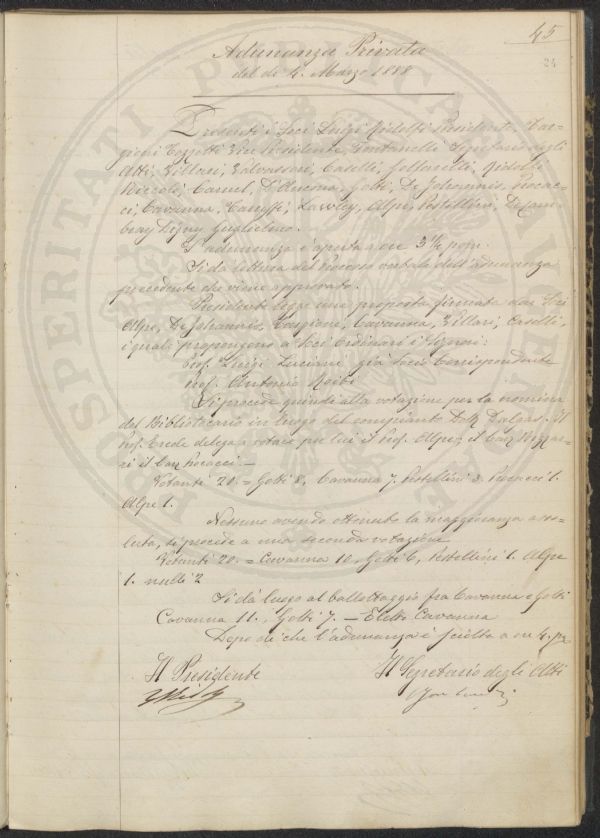 45
24
Adunanza Privata
del dì 4. Marzo 1888
Presenti i Soci Luigi Ridolfi Presidente, Tar-
gioni Tozzetti Vice Presidente, Fontanelli Segretario degli
Atti, Villari, Valvassori, Caselli, Ridolfi
Niccolò, Caruel, D'Ancona, Gotti, De Johannis, Pucac-
ci, Cavanna, Lawley, Alpe, Pestellini, De Cam-
bray Digny Guglielmo.
L'adunanza è aperta a ore 3 ½ pom.
Si dà lettura del Processo verbale dell'adunanza
precedente che viene approvato.
Presidente legge una proposta firmata dai Soci
Alpe, De Johannis, Targioni, Cavanna, Villari, Caselli,
i quali propongono a Soci Ordinari i Signori:
Prof. Luigi Luciani già Socio Corrispondente
Prof. Antonio Roiti
Si procede quindi alla votazione per la nomina
del Bibliotecario in luogo del compianto Dott. Dalgas. Il
Prof. Erede delega a votare per lui il Prof. Alpe; il Cav.
il Cav. Pucacci. —
Votanti 20. = Gotti 8, Cavanna 7. Pestellini 3. Pucacci 1.
Alpe 1.
Nessuno avendo ottenuto la maggioranza asso-
luta, si procede a una seconda votazione
Votanti 20. = Cavanna 10, Gotti 6, Pestellini 1. Alpe
1. nulli 2
Si dà luogo al ballottaggio fra Cavanna e Gotti
Cavanna 11., Gotti 7. — Eletto Cavanna
Dopo di che l'adunanza è sciolta a ore 4.
Il Presidente
Il Segretario degli Atti